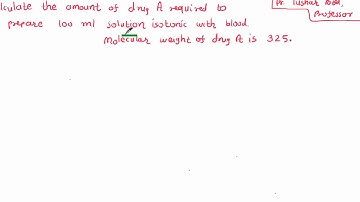 lculate the amount of drug A required to
prepare 100 ml solution isotonic with blood.
Molecular weight of drug A is 325.
Dr. Tushar
Professor